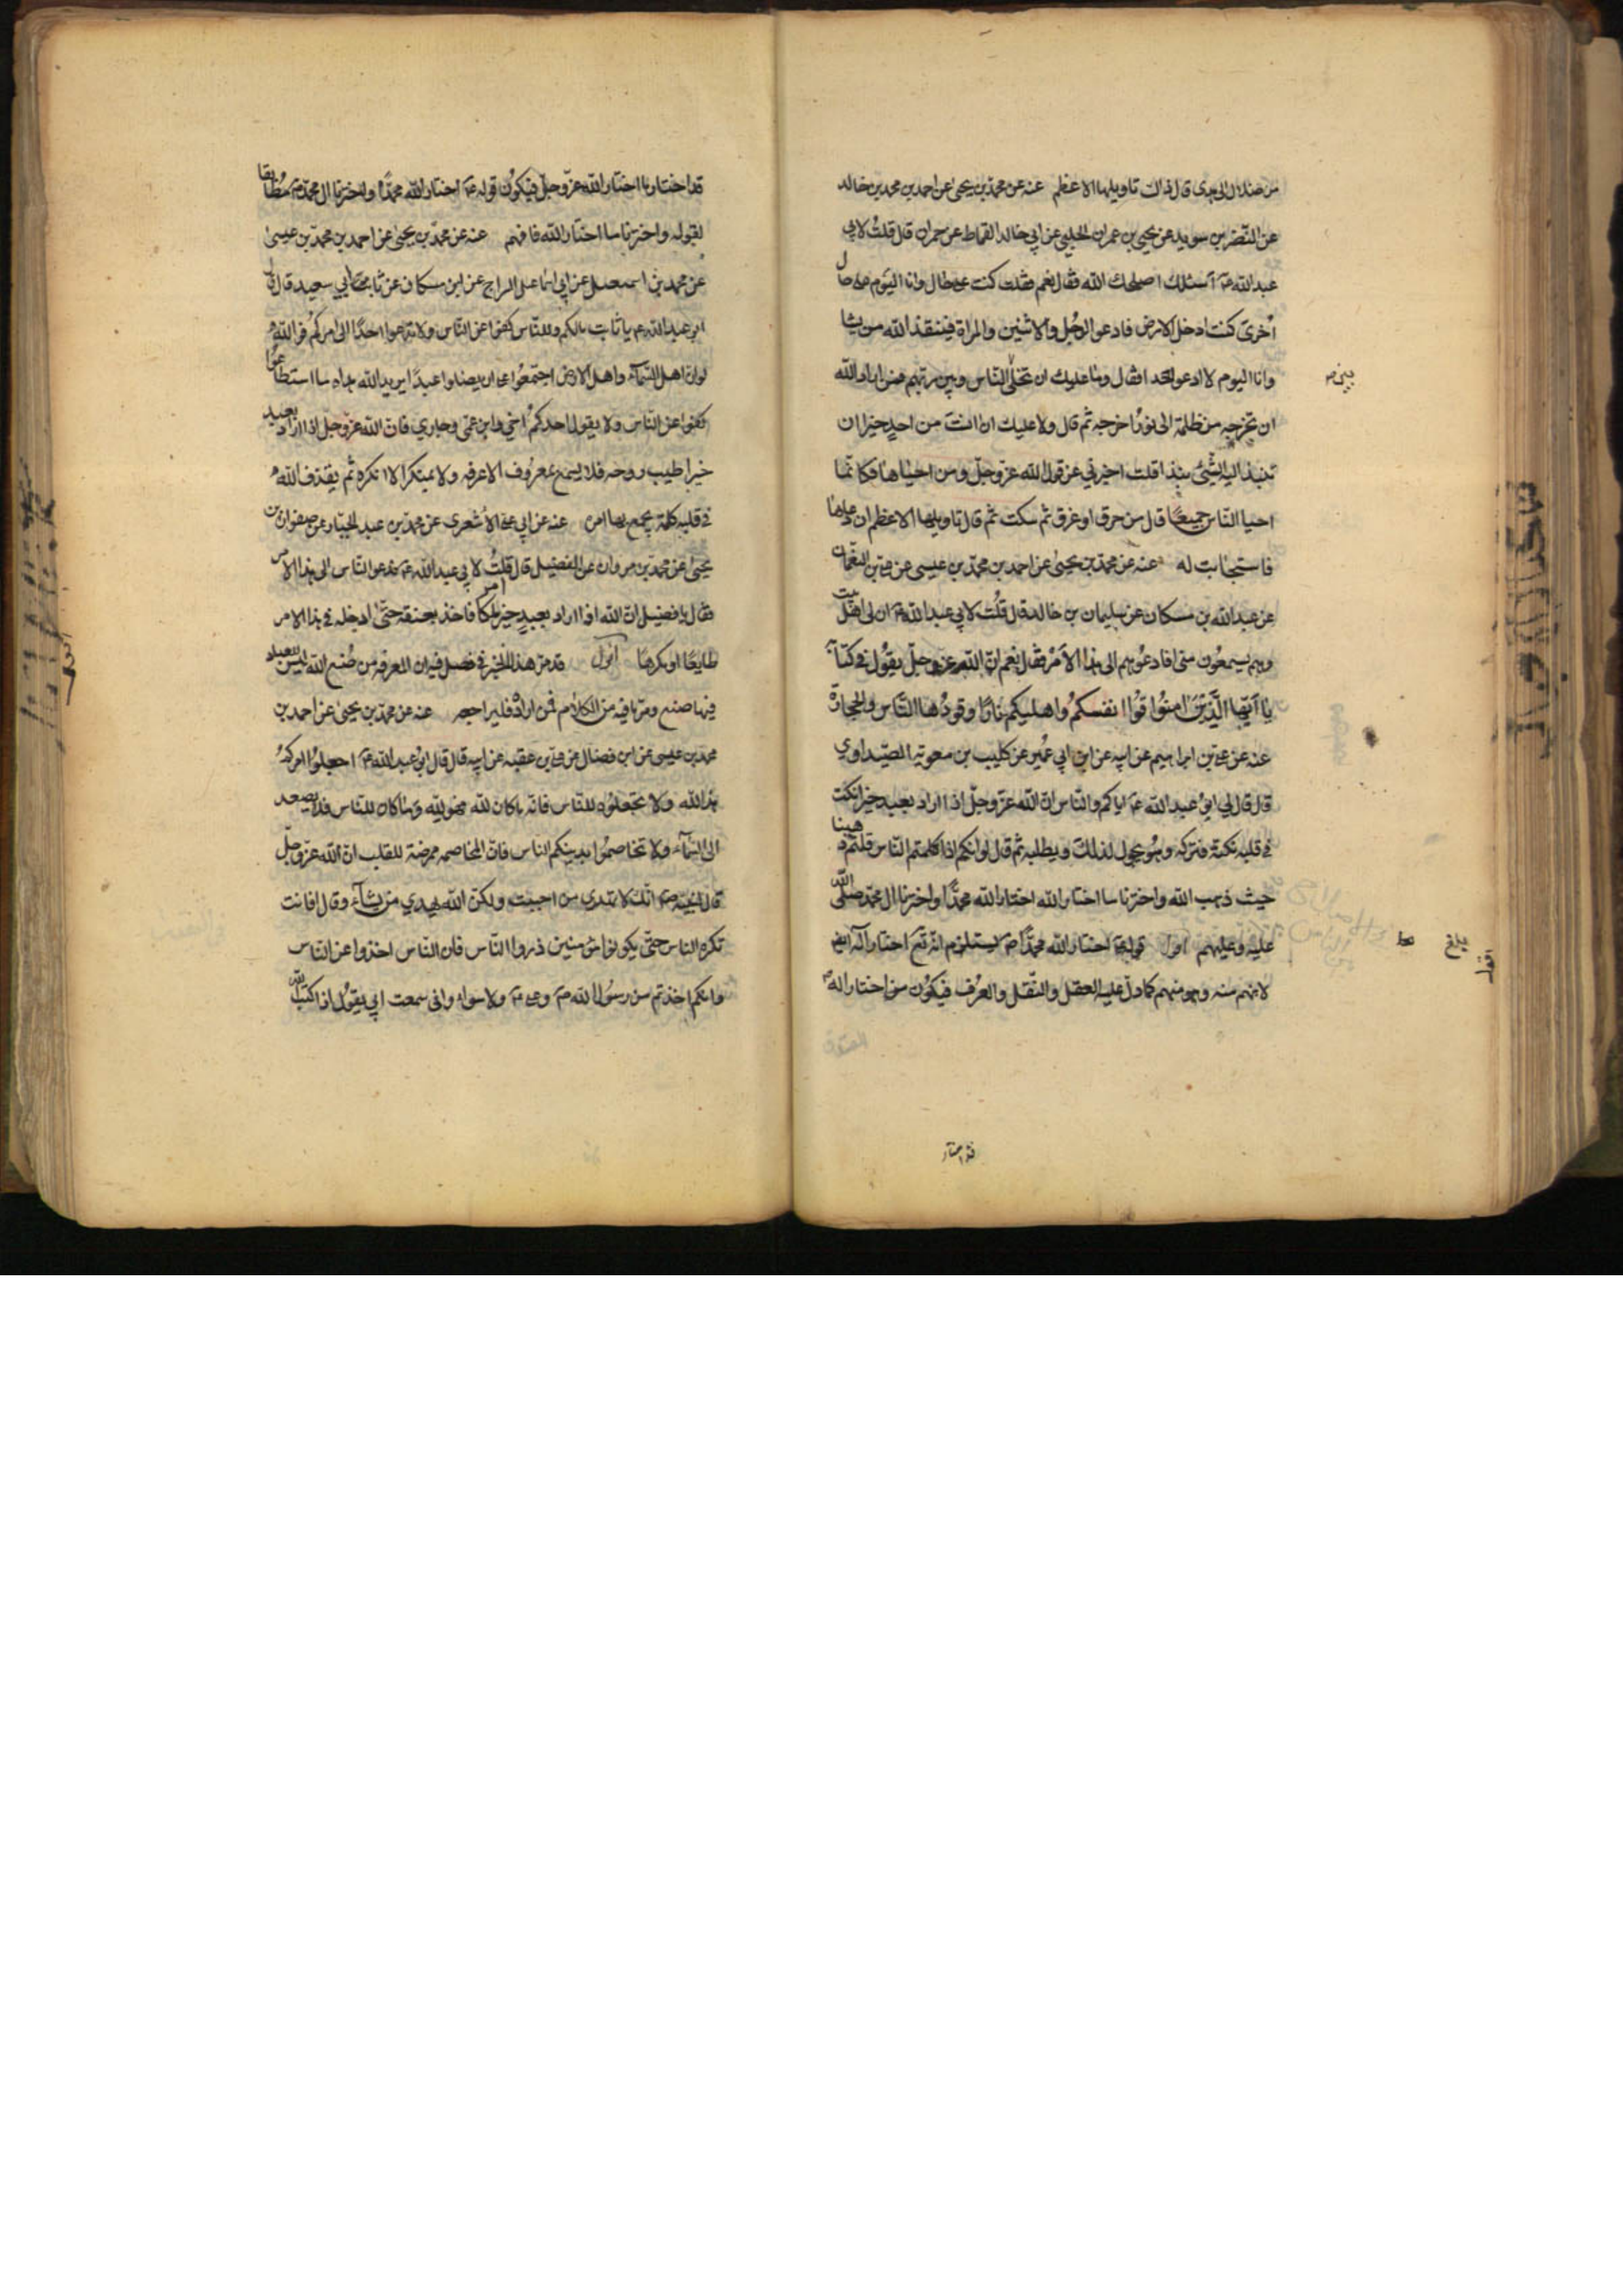 من ضلال الى هدى قال ذاك تاويلها الاعظم عنه عن محمد بن يحيى عن احمد بن محمد بن خالد
عن النضر بن سويد عن يحيى بن عمران الحلبي عن ابي خالد القماط عن حمران قال قلت لابي
عبد الله عم اسئلك اصلحك الله فقال نعم فقلت كنت على حال وانا اليوم على حال
اخرى كنت ادخل الارض فادعو الرجل والاثنين والمراة فينقذ الله من يشا
وانا اليوم لا ادعو احدا فقال وما عليك ان تخلى الناس وبين ربهم فمن اراد الله
ان تخرجه من ظلمة الى نور اخرجه ثم قال ولا عليك ان انست من احد خيرا ان
تنبذ اليه الشئ نبذا قلت اخبرني عن قول الله عز وجل ومن احياها فكانما
احيا الناس جميعا قال من حرق او غرق ثم سكت ثم قال تاويلها الاعظم ان دعاها
فاستجابت له عنه عن محمد بن يحيى عن احمد بن محمد بن عيسى عن علي بن النعمان
عن عبد الله بن مسكان عن سليمان بن خالد قال قلت لابي عبد الله عم ان لى اهل بيت
وهم يسمعون منى افادعوهم الى هذا الامر فقال نعم ان الله عز وجل يقول في كتابه
يا ايها الذين امنوا قوا انفسكم واهليكم نارا وقودها الناس والحجارة
عنه عن علي بن ابراهيم عن ابيه عن ابن ابي عمير عن كليب بن معوية الصيداوي
قال قال لي ابو عبد الله عم اياكم والناس ان الله عز وجل اذا اراد بعبد خيرا نكت
في قلبه نكتة فتركه وهو يجول لذلك ويطلبه ثم قال لو انكم اذا كلمتم الناس قلتم ذهبنا
حيث ذهب الله واخترنا ما اختار الله اختار الله محمدا واخترنا ال محمد صلى الله
عليه وعليهم اقول قوله عم اختار الله محمدا ص يستلزم انه تع اختار آله ايضا
لانهم منه وهو منهم كما دل عليه العقل والنقل والعرف فيكون من اختار اله
بلغ
قد اختار
قد اختار ما اختار الله عز وجل فيكون قوله عم اختار الله محمدا واخترنا ال محمد ص مطابقا
لقوله واخترنا ما اختار الله فافهم عنه عن محمد بن يحيى عن احمد بن محمد بن عيسى
عن محمد بن اسمعيل عن ابي اسماعيل السراج عن ابن مسكان عن ثابت ابي سعيد قال قال
ابو عبد الله عم يا ثابت مالكم وللناس كفوا عن الناس ولا تدعوا احدا الى امركم فو الله
لو ان اهل السماء واهل الارض اجتمعوا على ان يضلوا عبدا يريد الله هداه ما استطاعوا
كفوا عن الناس ولا يقول احدكم اخي وابن عمى وجاري فان الله عز وجل اذا اراد بعبد
خيرا طيب روحه فلا يسمع بمعروف الا عرفه ولا بمنكر الا انكره ثم يقذف الله
في قلبه كلمة يجمع بها امره عنه عن ابي علي الاشعري عن محمد بن عبد الجبار عن صفوان بن
يحيى عن محمد بن مروان عن الفضيل قال قلت لابي عبد الله عم ندعو الناس الى هذا الامر
فقال يا فضيل ان الله اذا اراد بعبد خيرا امر ملكا فاخذ بعنقه حتى ادخله في هذا الامر
طايعا او كرها اقول قد مر هذا الخبر في فصل في ان المعرفه من صنع الله ليس للعباد
فيها صنع ومر ما فيه من الكلام فمن اراده فليراجعه عنه عن محمد بن يحيى عن احمد بن
محمد بن عيسى عن ابن فضال عن علي بن عقبه عن ابيه قال قال ابو عبد الله عم اجعلوا امركم
هذا لله ولا تجعلوه للناس فانه ما كان لله فهو لله وما كان للناس فلا يصعد
الى السماء ولا تخاصموا بدينكم الناس فان المخاصمه ممرضة للقلب ان الله عز وجل
قال لنبيه ص انك لا تهدى من احببت ولكن الله يهدي من يشاء وقال افانت
تكره الناس حتى يكونوا مؤمنين ذروا الناس فان الناس اخذوا عن الناس
وانكم اخذتم من رسول الله ص وعلي عم ولا سواء وانى سمعت ابي يقول اذا كتب الله